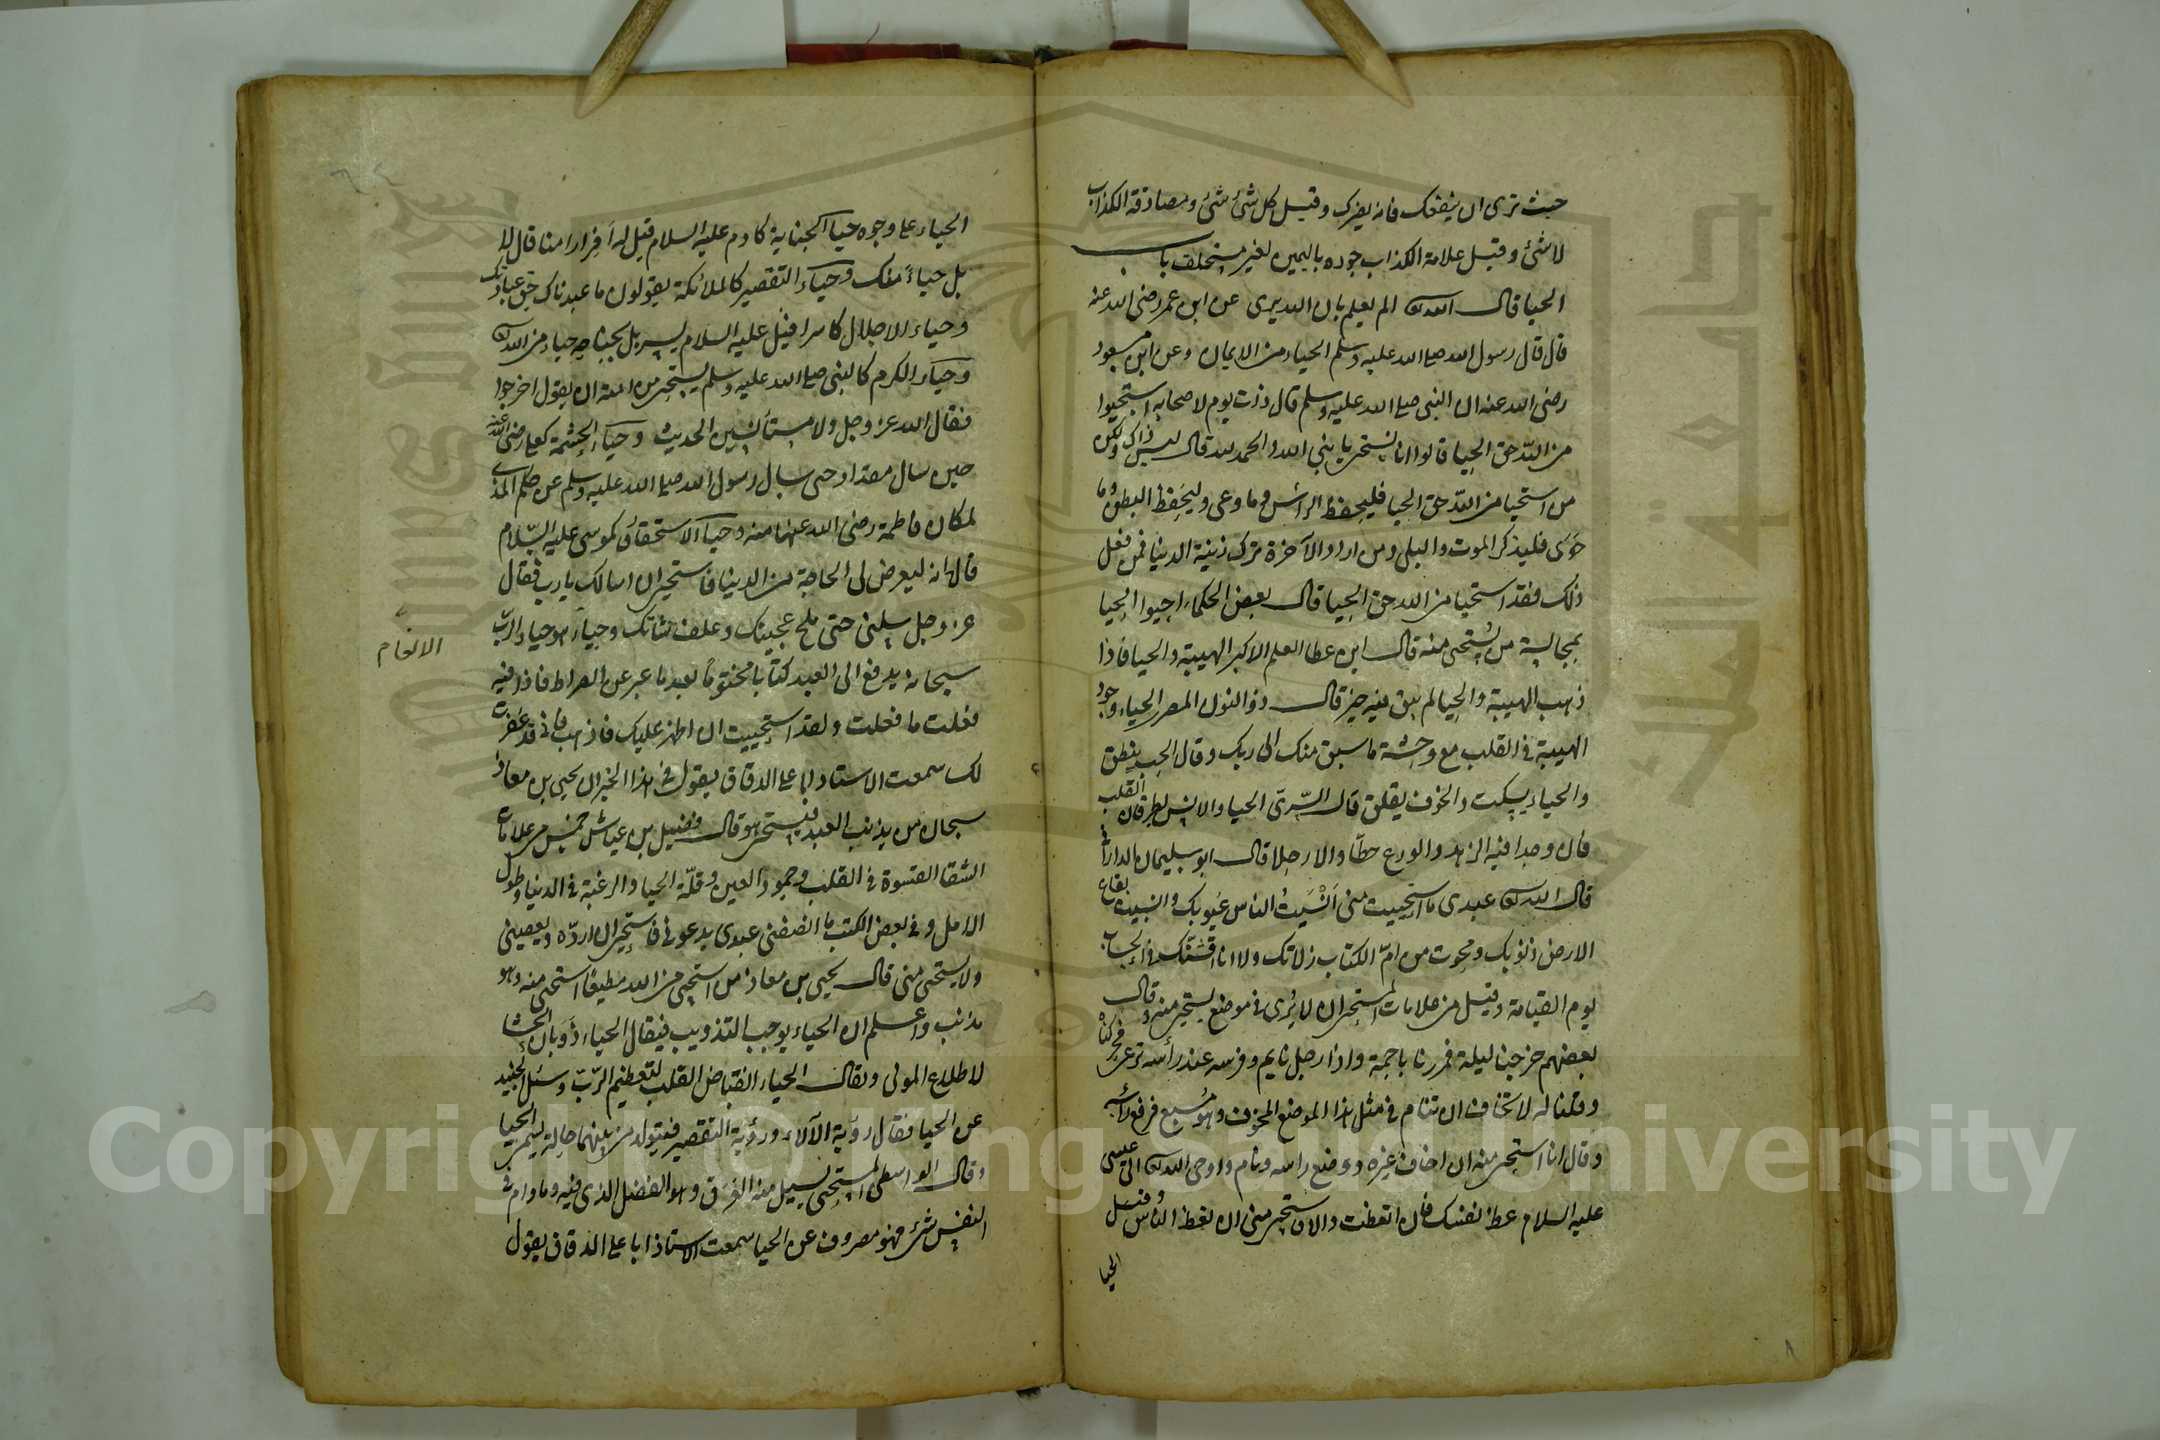 حيث ترى ان ينفعك فانه يضرك وقيل لكل شئ شئ ومصادقة الكذاب
لا شئ وقيل علامة الكذاب جوده باليمين لغير مستحلف باب
الحيا قال الله تعالى الم يعلم بان الله يرى عن ابن عمر رضى الله عنه
قال قال رسول الله صلى الله عليه وسلم الحياء من الايمان وعن ابن مسعود
رضى الله عنه ان النبى صلى الله عليه وسلم قال ذات يوم لاصحابه استحيوا
من الله حق الحيا قالوا انا نستحى يا نبى الله والحمد لله قال ليس ذاك ولكن
من استحيا من الله حق الحيا فليحفظ الرأس وما وعى وليحفظ البطن وما
حوى فليذكر الموت والبلى ومن اراد الآخرة ترك زينة الدنيا فمن فعل
ذلك فقد استحيا من الله حق الحيا قال بعض الحكماء احيوا الحيا
بمجالسة من يُستحى منه قال ابن عطا العلم الاكبر الهيبة والحيا فاذا
ذهب الهيبة والحيا لم يبق فيه خير قال ذو النون المصرى الحياء وجود
الهيبة فى القلب مع وحشة ما سبق منك الى ربك وقال الحب ينطق
والحياء يسكت والخوف يقلق قال السّرىّ الحيا والانس يطرقان القلب
فان وجدا فيه الزهد والورع حطّا والا رحلا قال ابو سليمان الدارانى
قال الله تعالى عبدى ما استحييت منى اَنْسَيتُ الناس عيوبك وانسيت بقاع
الارض ذنوبك ومحوت من امّ الكتاب زلاتك والا ناقشتك فى الحساب
يوم القيامة وقيل من علامات المستحى ان لا يُرى فى موضع يستحى منه وقال
بعضهم خرجنا ليلة فمررنا باجمة واذا رجل نايم وفرس عند رأسه ترعى فحركناه
وقلنا له لا تخاف ان تنام فى مثل هذا الموضع المخوف وهو مسبع فرفع رأسه
وقال انا استحى منه ان اخاف غيره ووضع راسه ونام واوحى الله تعالى الى عيسى
عليه السلام عظ نفسك فان اتعظت والا فاستحى منى ان تعظ الناس وقيل
الحيا
الحياء على وجوه حياء الجناية كادم عليه السلام قيل له أفرارا منا قال لا
بل حياءً منك وحياء التقصير كالملائكة يقولون ما عبدناك حق عبادتك
وحياء الاجلال كاسرافيل عليه السلام يسربل بجناحه حياء من الله تعالى
وحياء الكرم كالنبى صلى الله عليه وسلم يستحى من امته ان يقول اخرجوا
فقال الله عز وجل ولا مستأنسين لحديث وحياء الحشمة كعلى رضى الله عنه
حين سال مقداد حتى سال رسول الله صلى الله عليه وسلم عن حكم المذى
لمكان فاطمة رضى الله عنها منه وحياء الاستحقار كموسى عليه السّلام
قال انه ليعرض لى الحاجة من الدنيا فاستحى ان اسالك يا رب فقال
عز وجل سلنى حتى ملح عجينك وعلف شاتك وحياء هو حياء الربّ
الانعام
سبحانه يدفع الى العبد كتابا مختوما بعد ما عبر عن الصراط فاذا فيه
فعلت ما فعلت ولقد استحييت ان اظهر عليك فاذهب فانى قد غفرت
لك سمعت الاستاد ابا على الدقاق يقول فى هذا الخبر ان يحيى بن معاذ
سبحان من يذنب العبد فيستحى هو قال فضيل بن عياض خمس من علامات
الشقا القسوة فى القلب وجمود العين وقلّة الحيا والرغبة فى الدنيا وطول
الامل وفى بعض الكتب ما انصفنى عبدى يدعونى فاستحى ان اردّه ويعصينى
ولا يستحى منى قال يحيى بن معاذ من استحيى من الله مطيعا استحى منه وهو
مذنب واعلم ان الحياء يوجب التذويب فيقال الحياء ذَوبان الحشا
لاطلاع المولى ويقال الحياء انقباض القلب لتعظيم الرّبّ وسئل الجنيد
عن الحيا فقال رؤية الآلاء ورؤية التقصير فيتولد من بينهما حالة تسمى الحيا
وقال الواسطى المستحيى يسيل منه العرق وهو الفضل الذى فيه وما دام فى
النفس شئ فهو مصروف عن الحيا سمعت الاستاذ ابا على الدقاق يقول
Copyright © King Saud University
جامعة الملك سعود